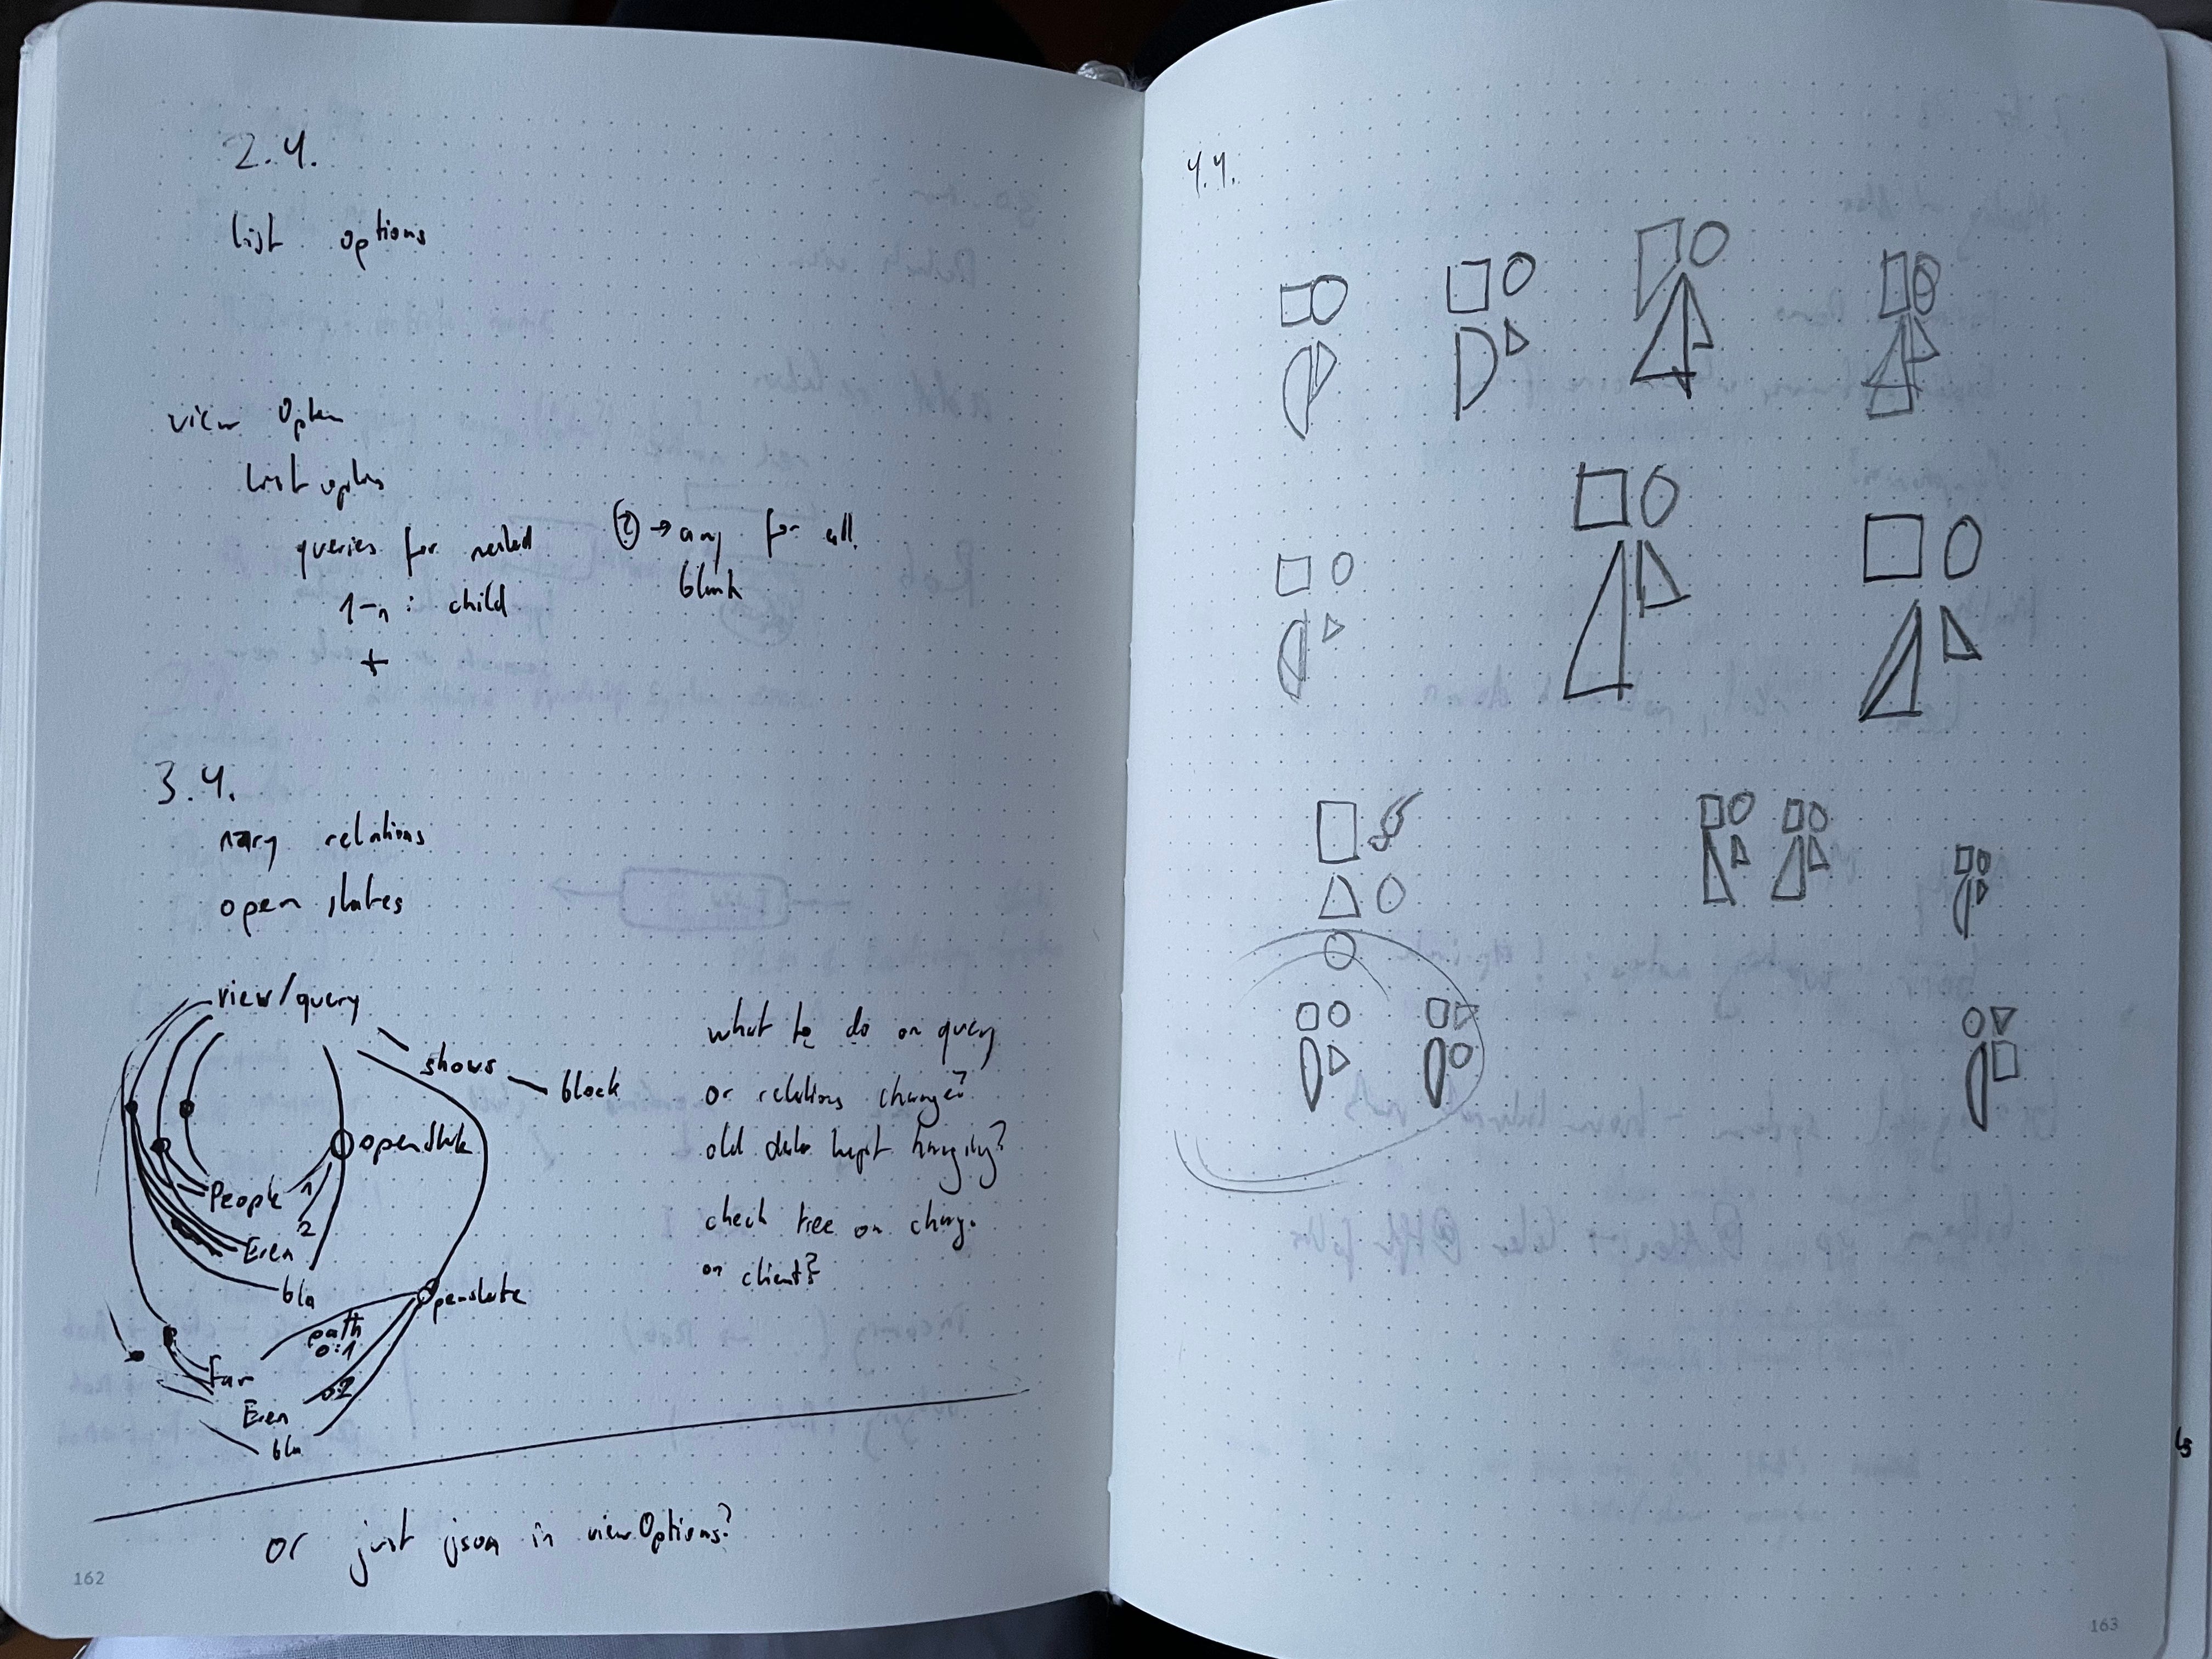 2.4.
list options
view Option
list options
queries for nested
1-n : child
+
? → any for all
blank
3.4.
nary relations
open states
view/query
shows
block
openstate
People 1
2
Eren
bla
openstate
path
0:1
0:2
Eren
bla
what to do on query
or relations change?
old data kept hanging?
check tree on change
on client?
or just json in viewOptions?
162
4.4.
163